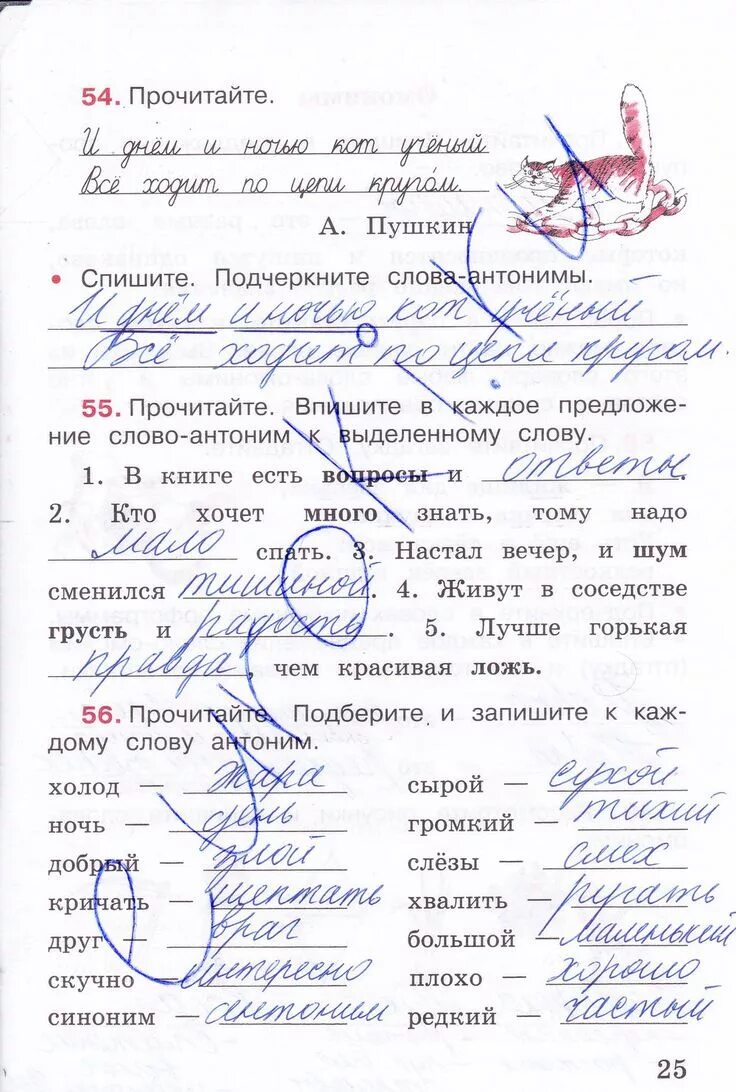 54. Прочитайте.
И днём и ночью кот учёный
Всё ходит по цепи кругом.
А. Пушкин
• Спишите. Подчеркните слова-антонимы.
И днём и ночью кот учёный
Всё ходит по цепи кругом.
55. Прочитайте. Впишите в каждое предложе-
ние слово-антоним к выделенному слову.
1. В книге есть вопросы и ответы.
2. Кто хочет много знать, тому надо
мало спать. 3. Настал вечер, и шум
сменился тишиной. 4. Живут в соседстве
грусть и радость. 5. Лучше горькая
правда, чем красивая ложь.
56. Прочитайте. Подберите и запишите к каж-
дому слову антоним.
холод — жара сырой — сухой
ночь — день громкий — тихий
добрый — злой слёзы — смех
кричать — шептать хвалить — ругать
друг — враг большой — маленький
скучно — интересно плохо — хорошо
синоним — антоним редкий — частый
25